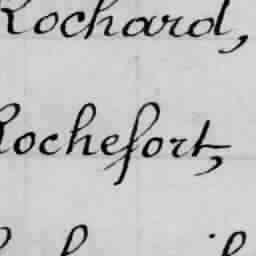 Rochard,
Rochefort,